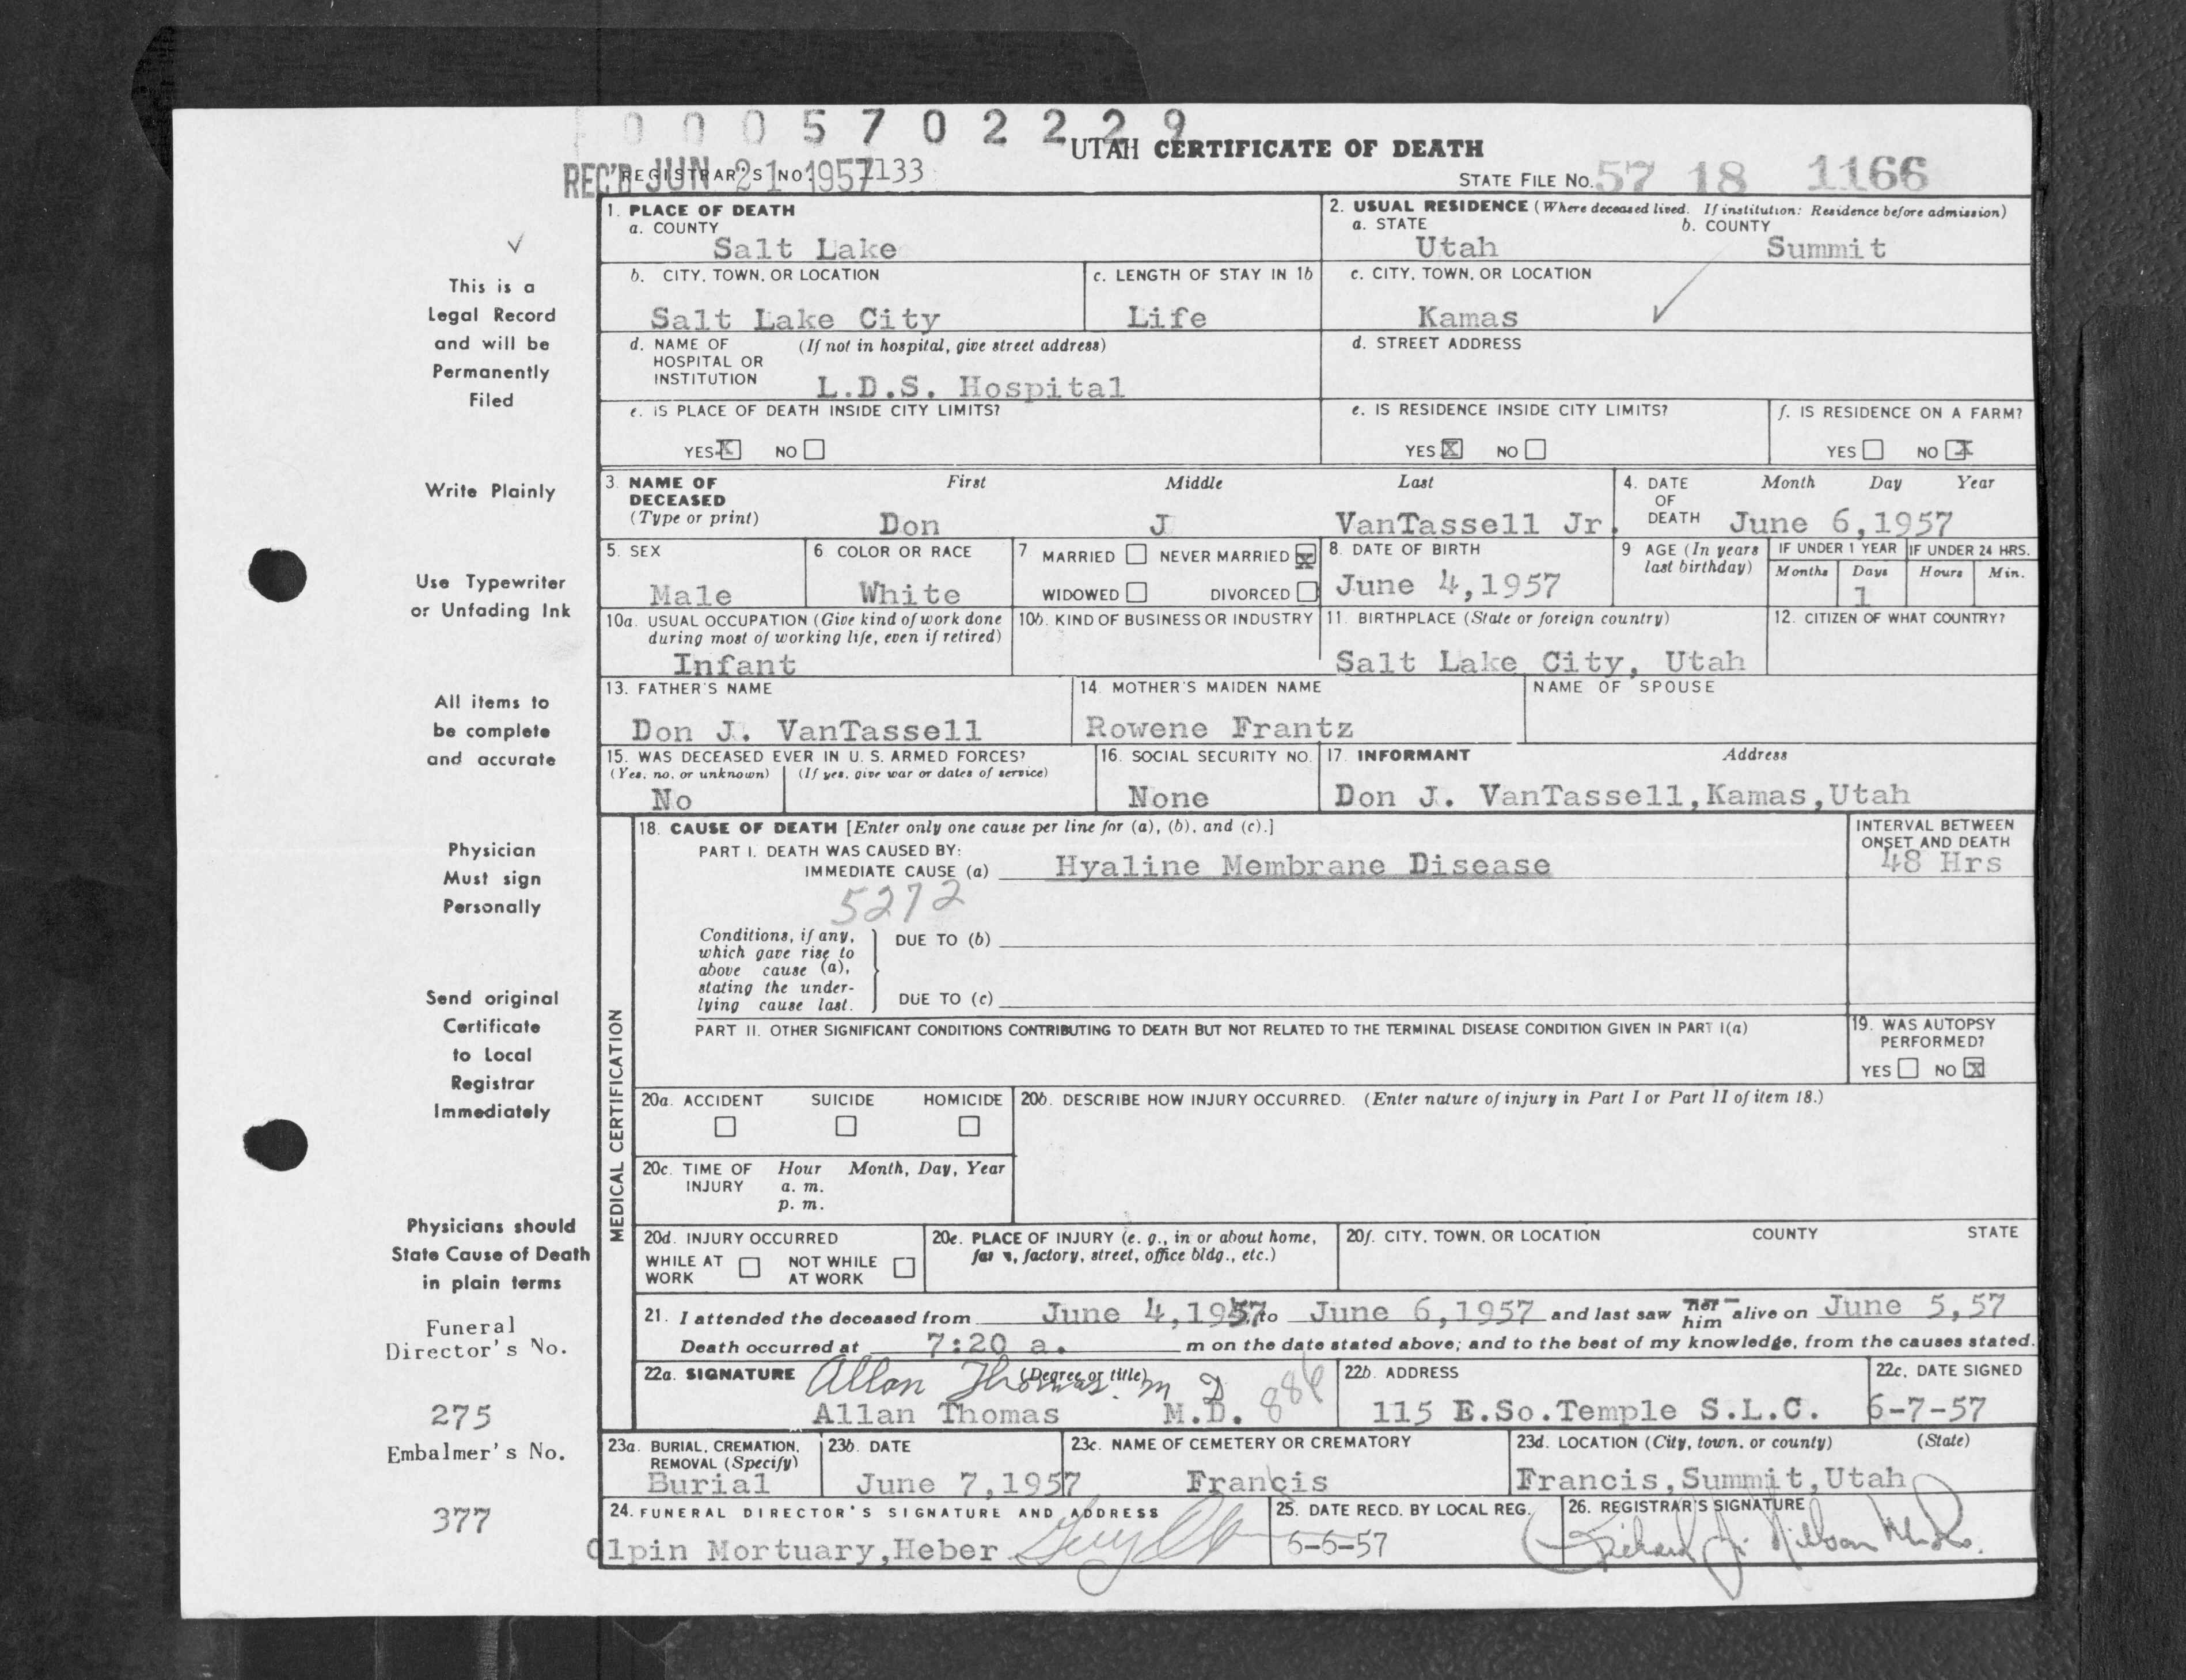 0 0 0 5 7 0 2 2 2 9
UTAH CERTIFICATE OF DEATH
REC'D JUN 21 1957
REGISTRAR'S NO. 1133
STATE FILE NO. 57 18 1166
1. PLACE OF DEATH
a. COUNTY
Salt Lake
2. USUAL RESIDENCE (Where deceased lived. If institution: Residence before admission)
a. STATE
Utah
b. COUNTY
Summit
b. CITY, TOWN, OR LOCATION
Salt Lake City
c. LENGTH OF STAY IN 1b
Life
c. CITY, TOWN, OR LOCATION
Kamas
d. NAME OF (If not in hospital, give street address)
HOSPITAL OR
INSTITUTION
L.D.S. Hospital
d. STREET ADDRESS
e. IS PLACE OF DEATH INSIDE CITY LIMITS?
YES X NO
e. IS RESIDENCE INSIDE CITY LIMITS?
YES X NO
f. IS RESIDENCE ON A FARM?
YES NO X
3. NAME OF
DECEASED
(Type or print)
First Middle Last
Don J VanTassell Jr.
4. DATE
OF
DEATH
Month Day Year
June 6,1957
5. SEX
Male
6. COLOR OR RACE
White
7 MARRIED NEVER MARRIED X
WIDOWED DIVORCED
8. DATE OF BIRTH
June 4,1957
9 AGE (In years
last birthday)
IF UNDER 1 YEAR
Months Days
1
IF UNDER 24 HRS.
Hours Min.
10a. USUAL OCCUPATION (Give kind of work done
during most of working life, even if retired)
Infant
10b. KIND OF BUSINESS OR INDUSTRY
11. BIRTHPLACE (State or foreign country)
Salt Lake City, Utah
12. CITIZEN OF WHAT COUNTRY?
13. FATHER'S NAME
Don J. VanTassell
14. MOTHER'S MAIDEN NAME
Rowene Frantz
NAME OF SPOUSE
15. WAS DECEASED EVER IN U. S. ARMED FORCES?
(Yes, no, or unknown) (If yes, give war or dates of service)
No
16. SOCIAL SECURITY NO.
None
17. INFORMANT Address
Don J. VanTassell,Kamas,Utah
MEDICAL CERTIFICATION
18. CAUSE OF DEATH [Enter only one cause per line for (a), (b), and (c).]
PART I. DEATH WAS CAUSED BY:
IMMEDIATE CAUSE (a) Hyaline Membrane Disease
INTERVAL BETWEEN
ONSET AND DEATH
48 Hrs
5272
Conditions, if any,
which gave rise to
above cause (a),
stating the under-
lying cause last.
DUE TO (b)
DUE TO (c)
PART II. OTHER SIGNIFICANT CONDITIONS CONTRIBUTING TO DEATH BUT NOT RELATED TO THE TERMINAL DISEASE CONDITION GIVEN IN PART I(a)
19. WAS AUTOPSY
PERFORMED?
YES NO X
20a. ACCIDENT SUICIDE HOMICIDE
20b. DESCRIBE HOW INJURY OCCURRED. (Enter nature of injury in Part I or Part II of item 18.)
20c. TIME OF Hour Month, Day, Year
INJURY a. m.
p. m.
20d. INJURY OCCURRED
WHILE AT NOT WHILE
WORK AT WORK
20e. PLACE OF INJURY (e. g., in or about home,
farm, factory, street, office bldg., etc.)
20f. CITY, TOWN, OR LOCATION COUNTY STATE
21. I attended the deceased from June 4,1957, to June 6,1957 and last saw her him alive on June 5,57
Death occurred at 7:20 a. m on the date stated above; and to the best of my knowledge, from the causes stated.
22a. SIGNATURE (Degree or title)
Allan Thomas. M D 886
Allan Thomas M.D.
22b. ADDRESS
115 E.So.Temple S.L.C.
22c. DATE SIGNED
6-7-57
23a. BURIAL, CREMATION,
REMOVAL (Specify)
Burial
23b. DATE
June 7,1957
23c. NAME OF CEMETERY OR CREMATORY
Francis
23d. LOCATION (City, town, or county) (State)
Francis,Summit,Utah
24. FUNERAL DIRECTOR'S SIGNATURE AND ADDRESS
Olpin Mortuary,Heber
25. DATE RECD. BY LOCAL REG.
6-6-57
26. REGISTRAR'S SIGNATURE
Richard
This is a
Legal Record
and will be
Permanently
Filed
Write Plainly
Use Typewriter
or Unfading Ink
All items to
be complete
and accurate
Physician
Must sign
Personally
Send original
Certificate
to Local
Registrar
Immediately
Physicians should
State Cause of Death
in plain terms
Funeral
Director's No.
275
Embalmer's No.
377